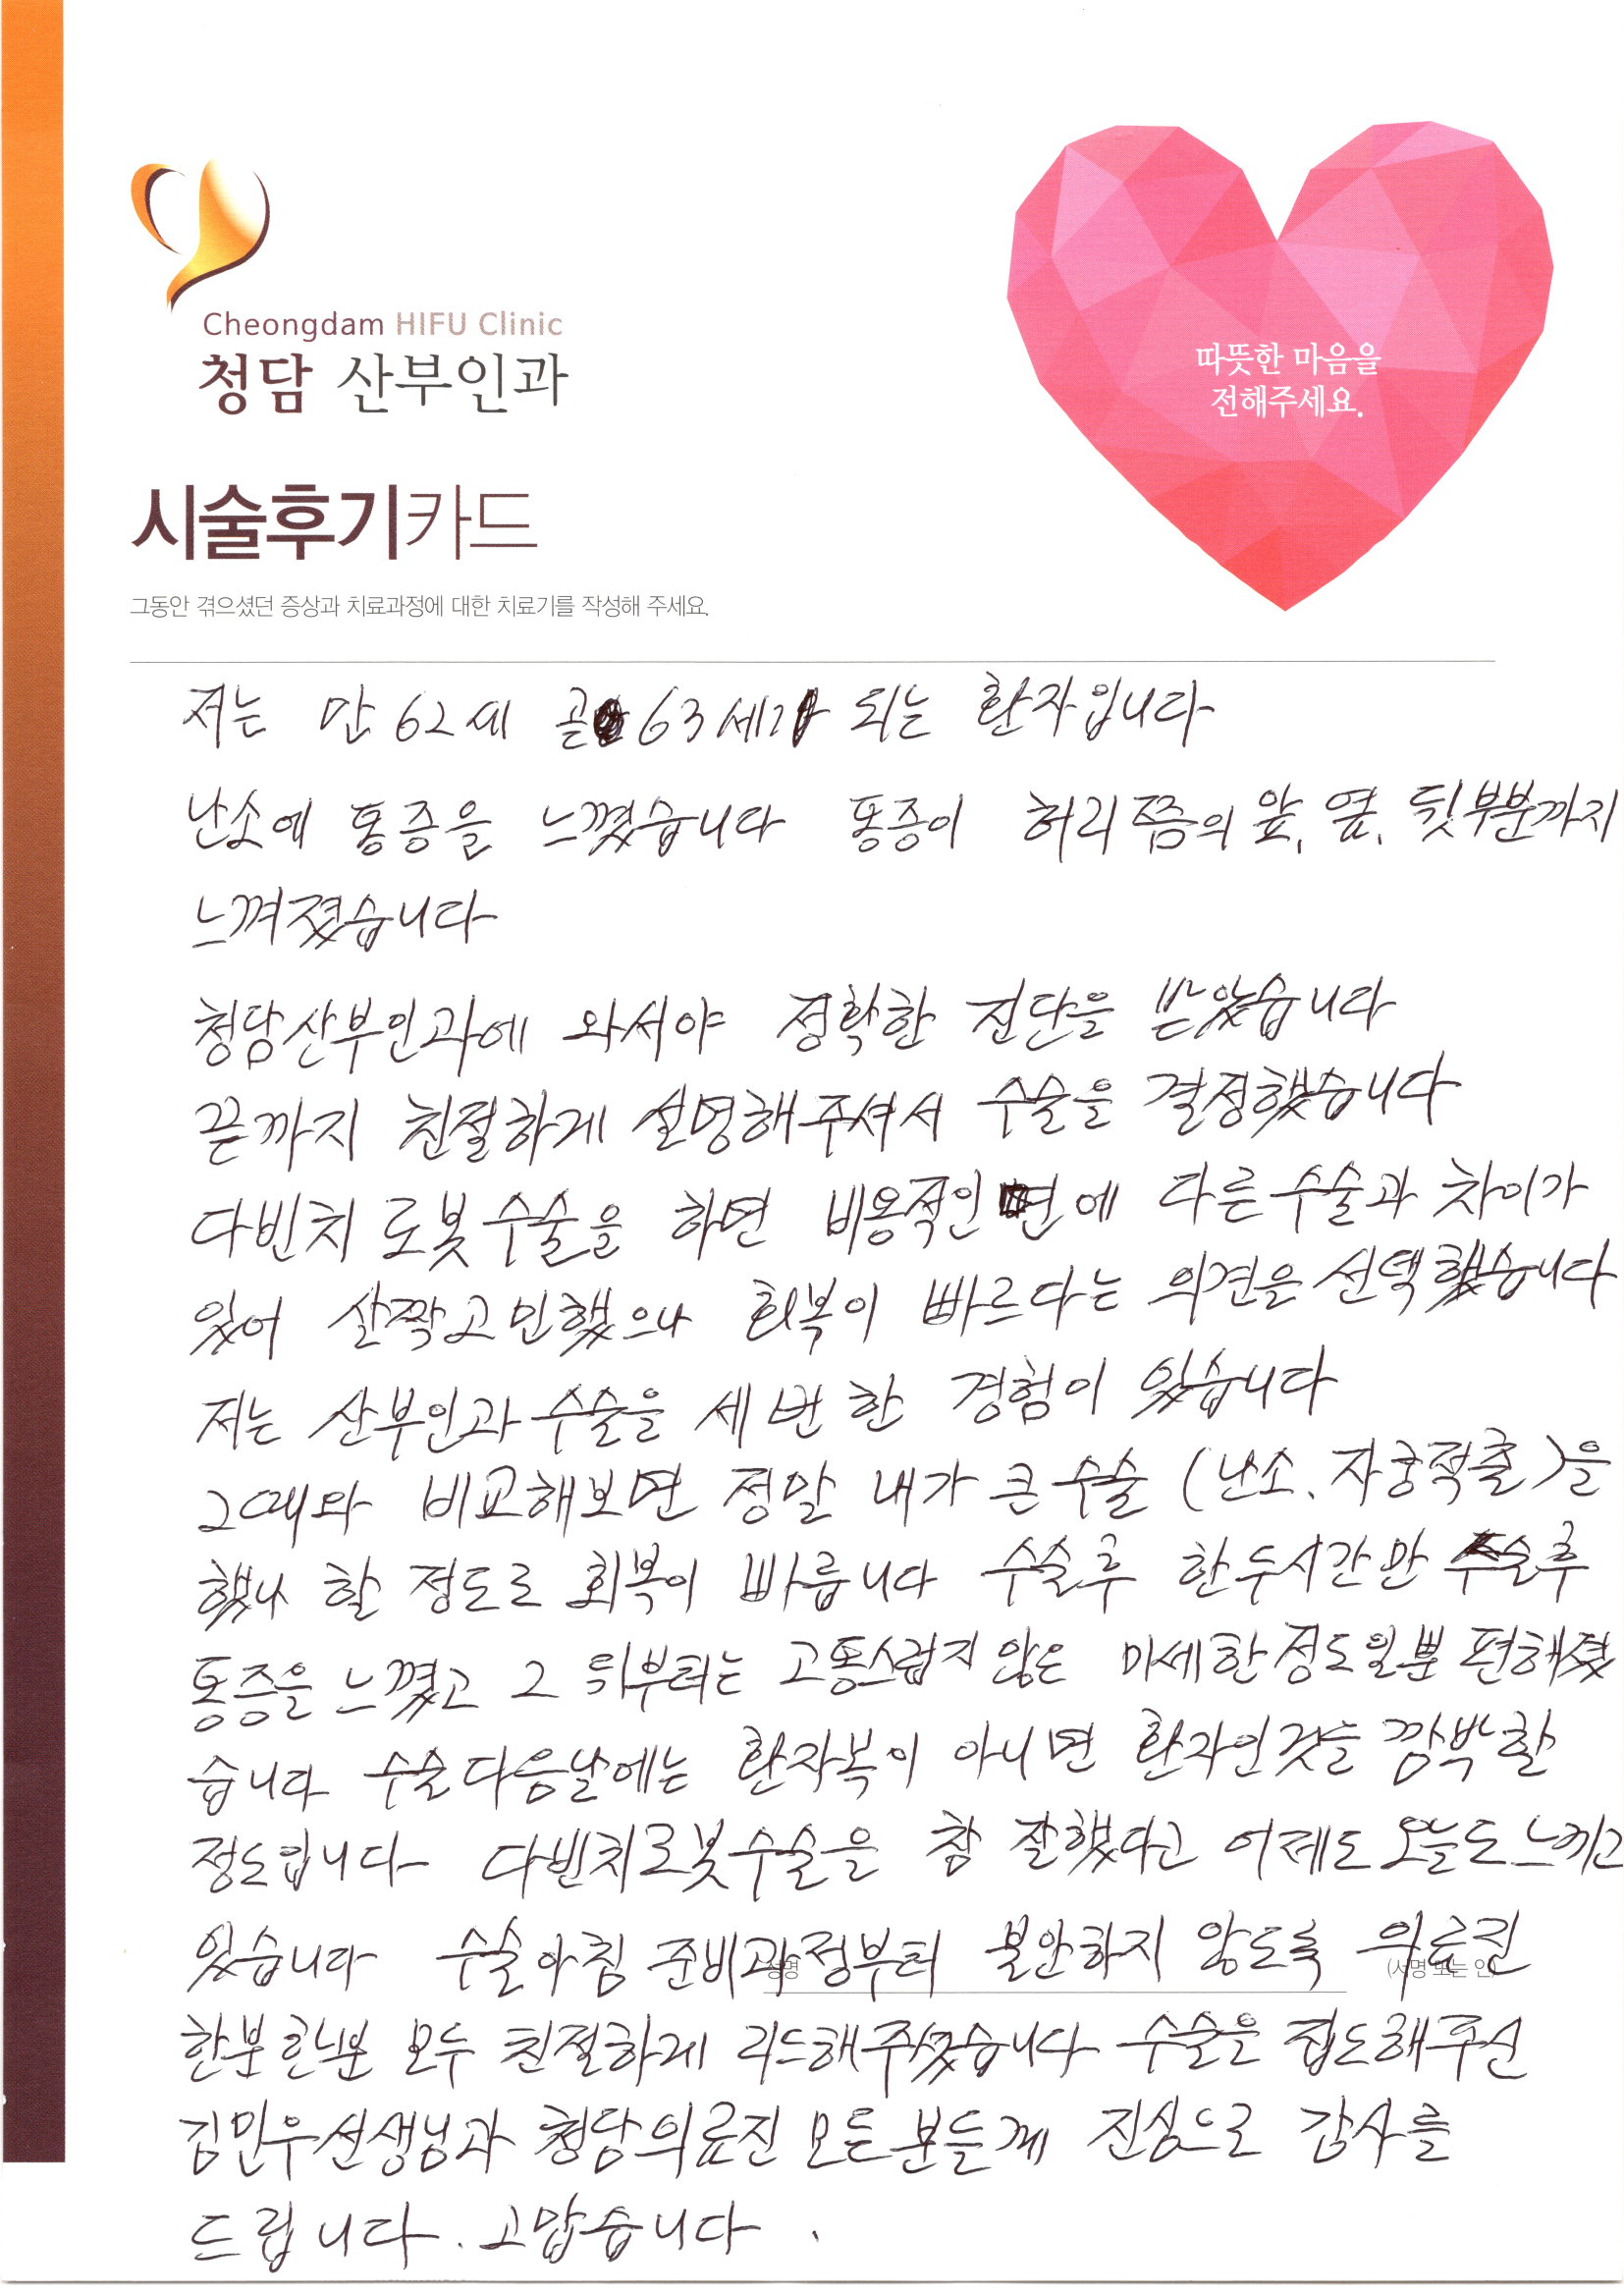 Cheongdam HIFU Clinic
청담 산부인과
따뜻한 마음을
전해주세요.
시술후기카드
그동안 겪으셨던 증상과 치료과정에 대한 치료기를 작성해 주세요.
저는 만 62세 곧 63세가 되는 환자입니다
난소에 통증을 느꼈습니다 통증이 허리쯤의 앞, 옆, 뒷부분까지
느껴졌습니다
청담산부인과에 와서야 정확한 진단을 받았습니다
끝까지 친절하게 설명해주셔서 수술을 결정했습니다
다빈치 로봇 수술을 하면 비용적인 면에 다른 수술과 차이가
있어 살짝 고민했으나 회복이 빠르다는 의견을 선택했습니다
저는 산부인과 수술을 세 번 한 경험이 있습니다
20대와 비교해보면 정말 내가 큰 수술 (난소, 자궁적출)을
했나 할 정도로 회복이 빠릅니다 수술후 한두시간만 수술후
통증을 느꼈고 그 뒤부터는 고통스럽지 않은 미세한 정도일뿐 편해졌
습니다 수술다음날에는 환자복이 아니면 환자인것을 깜박할
정도입니다 다빈치로봇수술을 참 잘했다고 어제도 오늘도 느끼고
있습니다 수술아침 준비과정부터 불안하지 않도록 의료진
성명 (서명 또는 인)
한분 한분 모두 친절하게 리드해주셨습니다 수술을 집도해주신
김민우선생님과 청담의료진 모든 분들께 진심으로 감사를
드립니다. 고맙습니다.